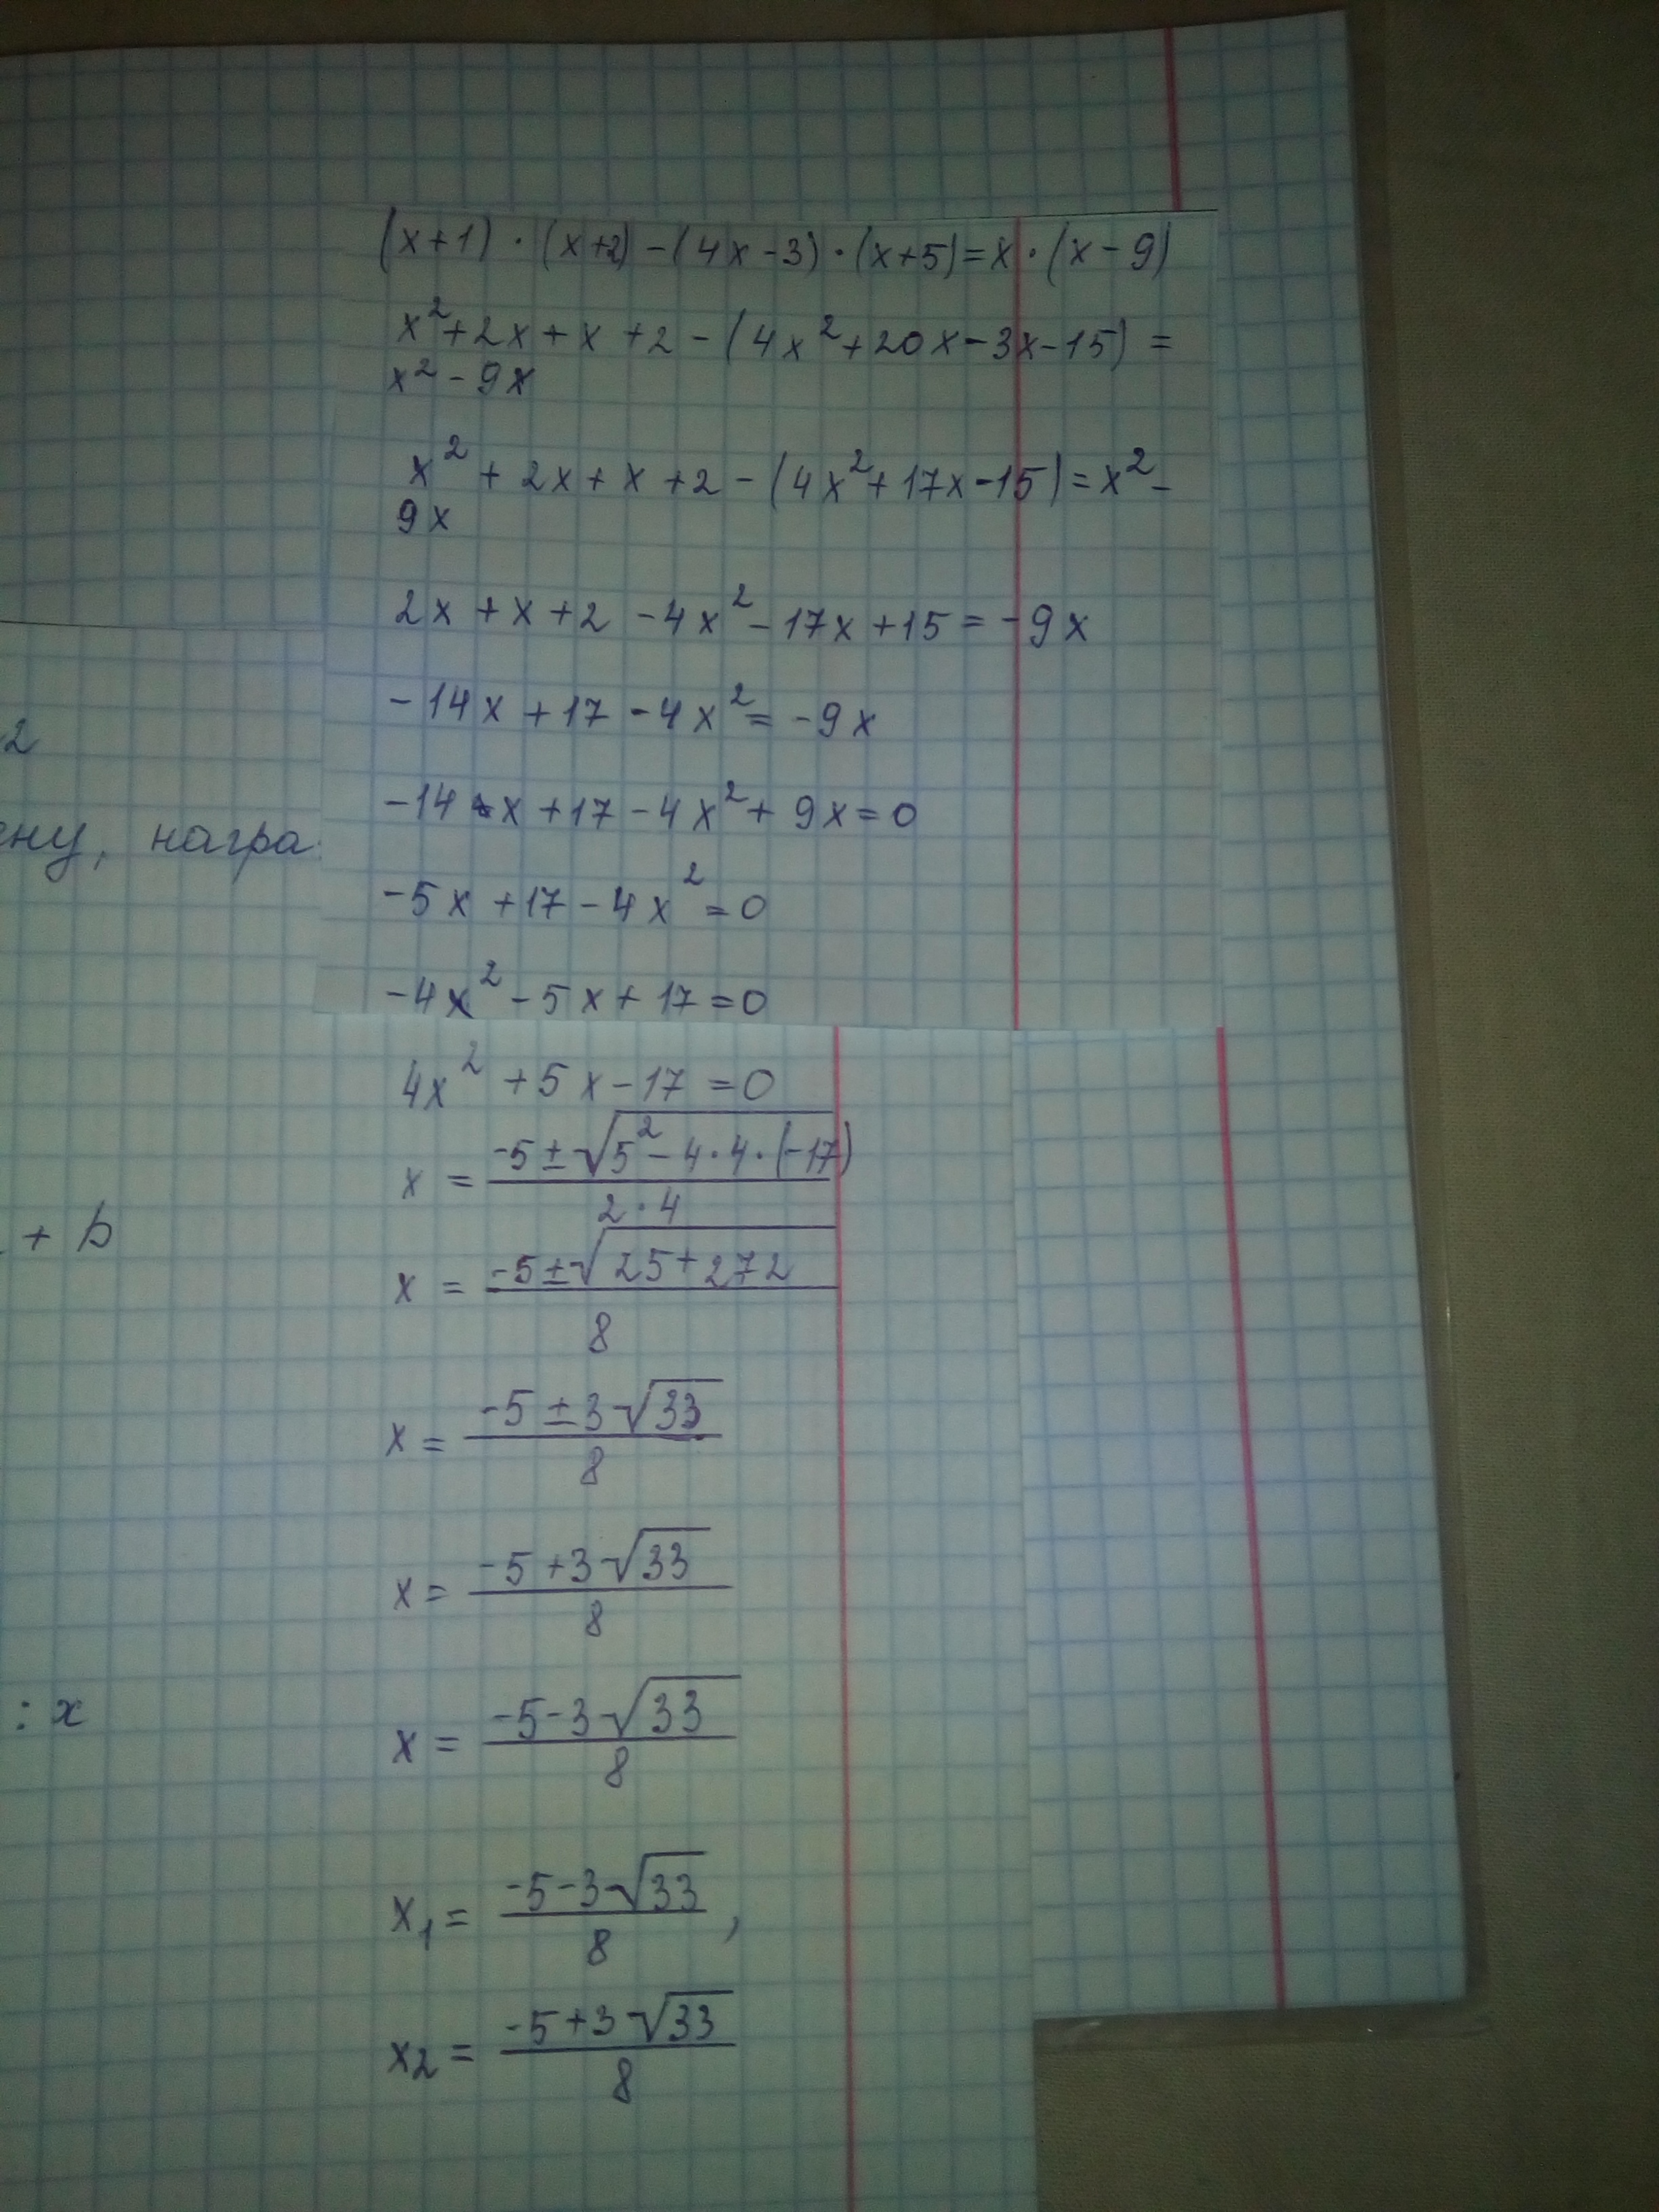 (x+1)·(x+2)-(4x-3)·(x+5)=x·(x-9)
x²+2x+x+2-(4x²+20x-3x-15)=
x²-9x
x²+2x+x+2-(4x²+17x-15)=x²-
9x
2x+x+2-4x²-17x+15=-9x
-14x+17-4x²=-9x
2
-14x+17-4x²+9x=0
ену, награ
-5x+17-4x²=0
-4x²-5x+17=0
4x²+5x-17=0
x = (-5±√(5²-4·4·(-17)))/(2·4)
+ b
x = (-5±√(25+272))/8
x = (-5±3√33)/8
x = (-5+3√33)/8
: x
x = (-5-3√33)/8
x₁ = (-5-3√33)/8,
x₂ = (-5+3√33)/8